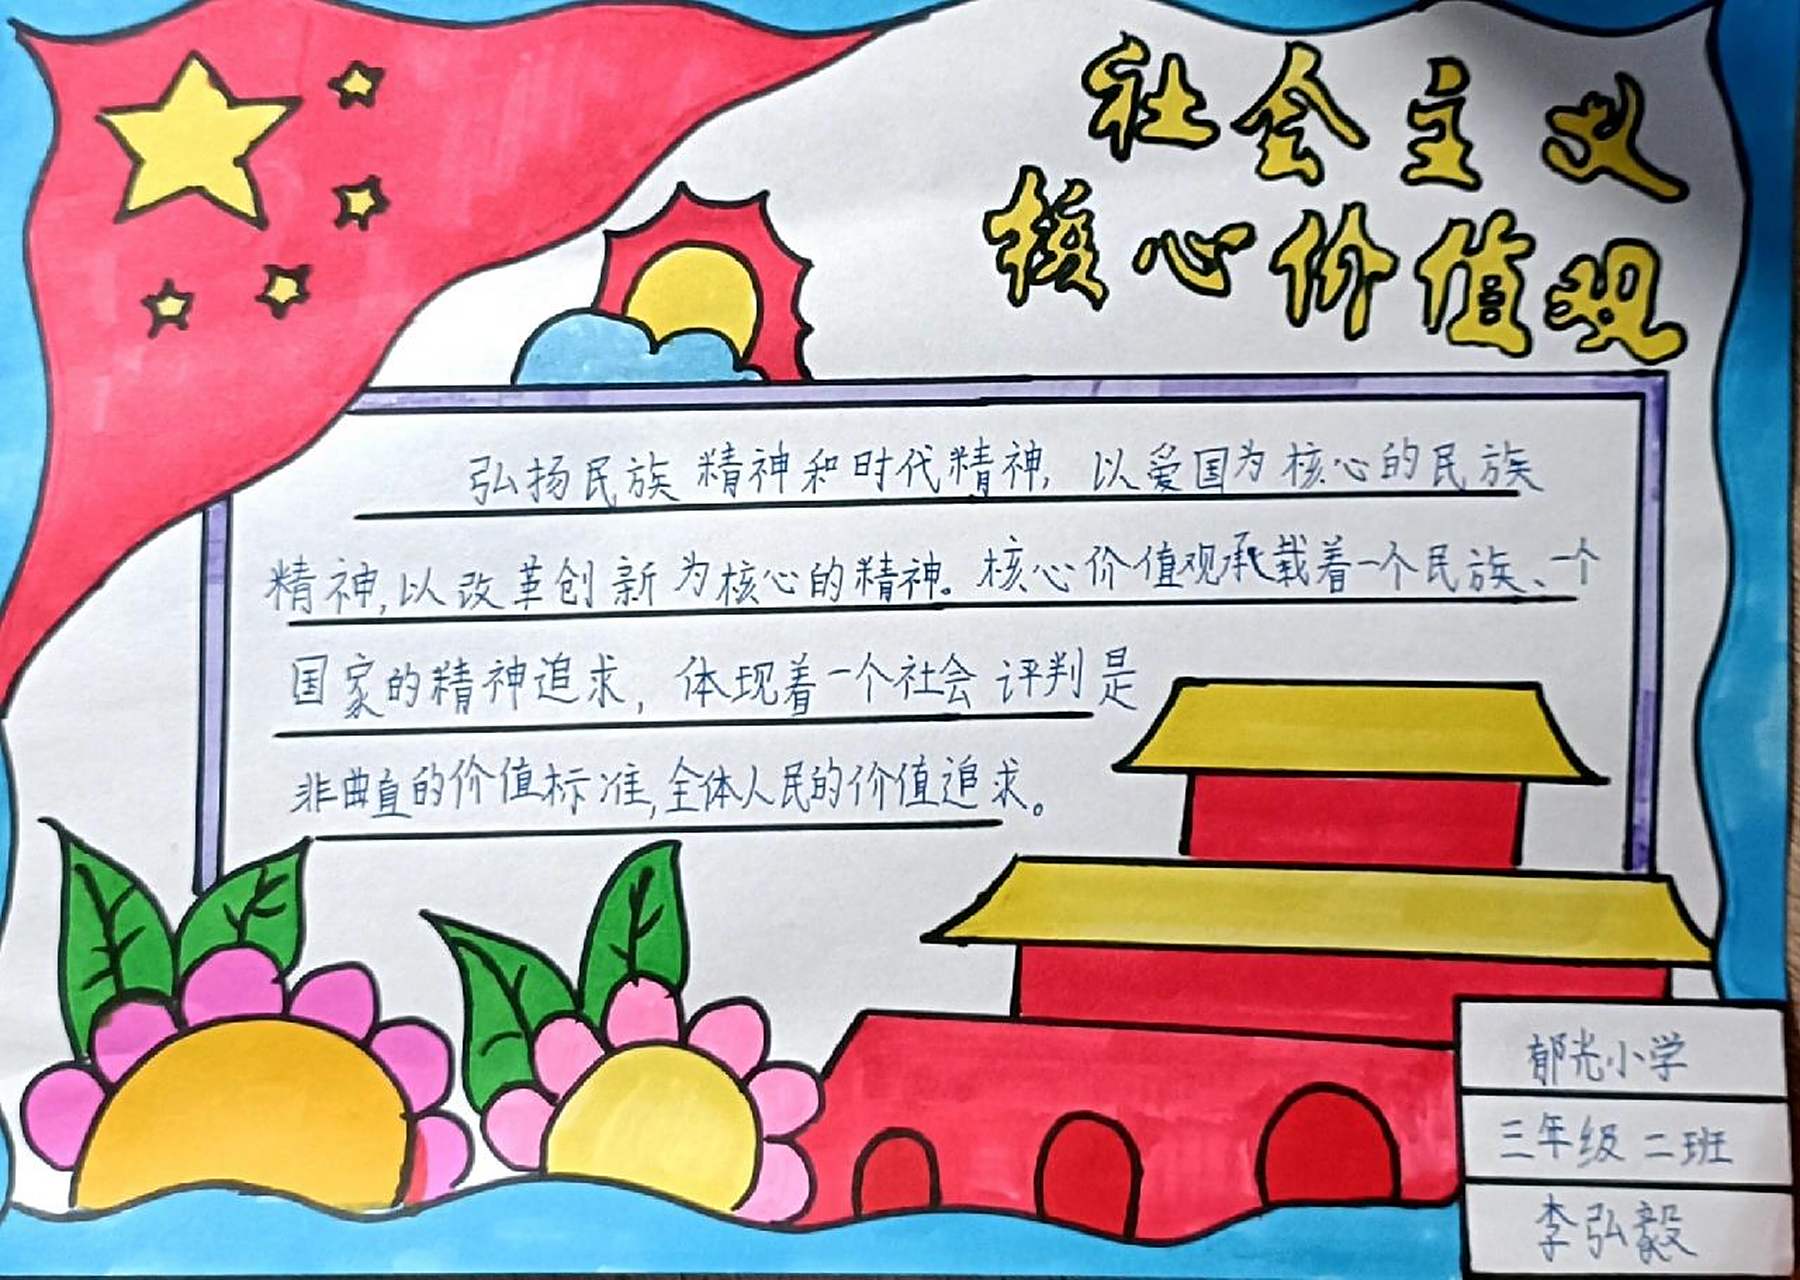 社会主义
核心价值观
弘扬民族精神和时代精神,以爱国为核心的民族
精神,以改革创新为核心的精神。核心价值观承载着一个民族、一个
国家的精神追求,体现着一个社会评判是
非曲直的价值标准,全体人民的价值追求。
郁光小学
三年级二班
李弘毅